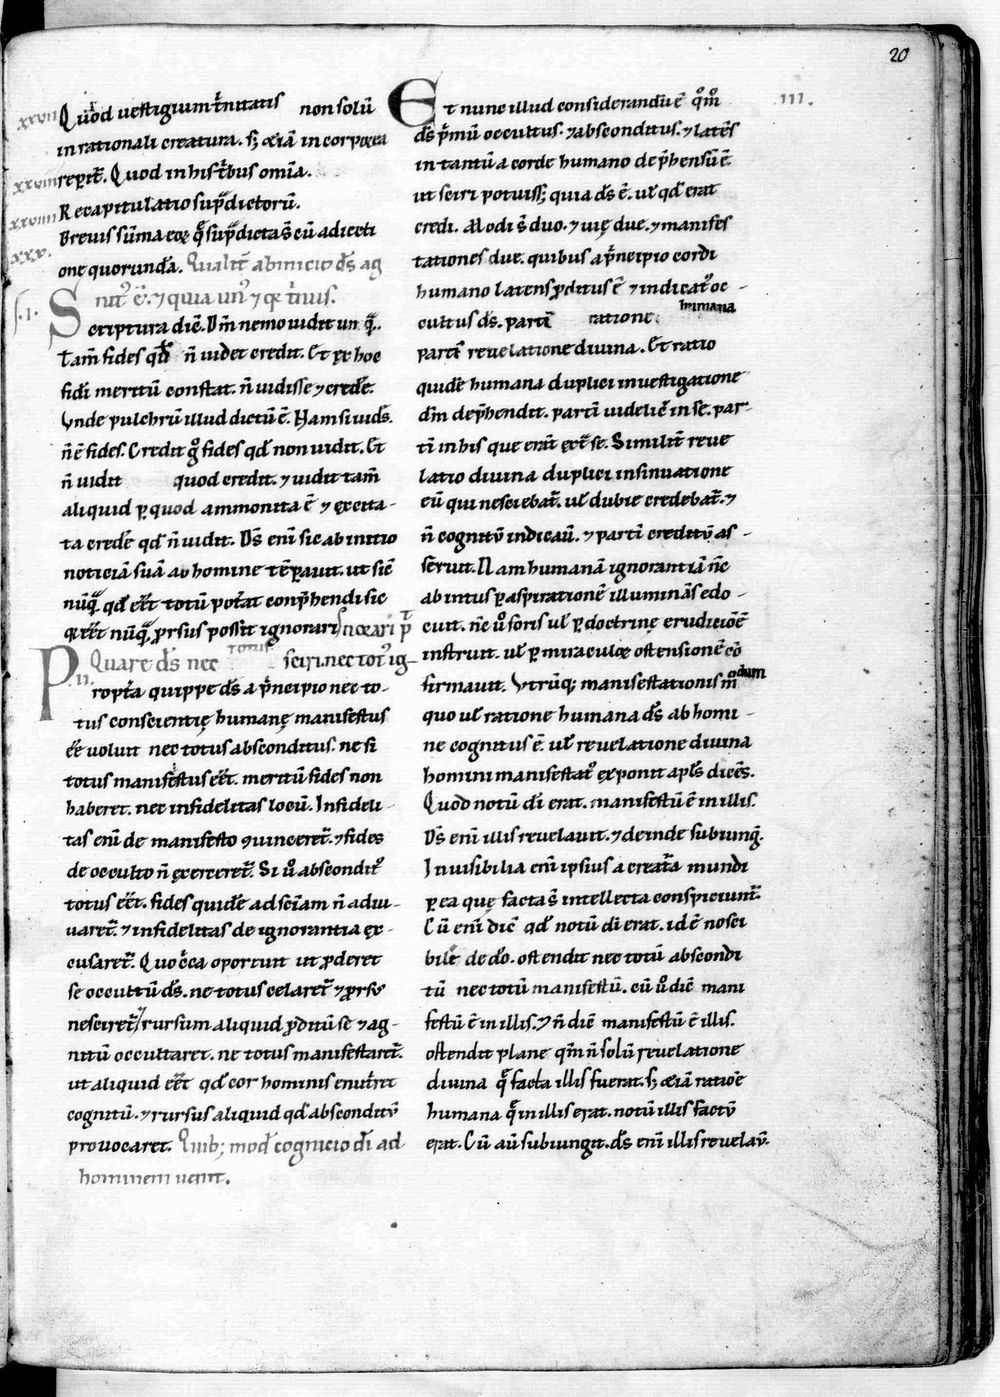 20
xxvii Quod uestigium t̄nitatis non solū
in rationali creatura. s; &iā in corporea
xxviii repit̄. Quod in his t̄bus omīa.
xxviiii Recapitulatio sup̄dictorū.
xxx. Breuis sūma eoꝝ q̄ sup̄dicta s̄ cū adiecti
one quorundā. Qualit̄ ab inicio d̄s ag
nit᷒ ē. ⁊ quia un᷒ ⁊ qđ t̄nus.
.i. Scriptura diē. Dm̄ nemo uidit unq̄.
Tam̄ fides qđ n̄ uidet credit. Et ex hoc
fidi meritū constat. n̄ uidisse ⁊ credēe.
Vnde pulchrū illud dictū ē. Nam si uides.
n̄ ē fides. Credit g̊ fides qđ non uidit. Et
n̄ uidit quod credit. ⁊ uidit tam̄
aliquid ꝑ quod ammonita ē ⁊ excita-
ta credēe qđ n̄ uidit. D̄s eni sic ab initio
noticiā suā ab homine tēꝑauit. ut sic
nūq̄ qđ eēt totū pot̄at conp̄hendi sic
qđ eēt nūq̄ ꝓrsus possit ignorari
Quare d̄s nec totus sciri. nec tot᷒ ig-
.ii. Propt̄a quippe d̄s a p̄ncipio nec to-
tus conscientię humanę manifestus
eē uoluit nec totus absconditus. ne si
totus manifestus eēt. meritū fides non
haberet. nec infidelitas locū. Infideli-
tas eni de manifesto ꝯuinceret̄. ⁊ fides
de occulto n̄ exerceret̄. Si u̇ abscondit᷒
totus eēt. fides quidē ad sciām n̄ adiu-
uaret̄. ⁊ infidelitas de ignorantia ex-
cusaret̄. Quocca oportuit ut ꝓderet
se occultū d̄s. ne totus celaret̄ ⁊ ꝓrsus
nesciret̄ / rursum aliquid ꝓditū se ⁊ ag-
nitū occultaret. ne totus manifestaret̄.
ut aliquid eēt qđ cor hominis enut̄ret
cognitū. ⁊ rursus aliquid qđ absconditū
prouocaret. Quib; mod᷒ cognicio dī ad
hominem uenit.
Et nunc illud considerandū ē qm̄ .iii.
d̄s p̄mū occultus. ⁊ absconditus. ⁊ latēs
in tantū a corde humano dep̄hensū ē
ut sciri potuiss; quia d̄s ē. ul qđ erat
credi. Modi s̄ duo. ⁊ uię due. ⁊ manifes
tationes due. quibus a p̄ncipio cordi
humano latens ꝓditus ē ⁊ indicat᷒ oc-
cultus d̄s. parti ratione humana
parti reuelatione diuina. Et ratio
quidē humana duplici inuestigatione
dm̄ dep̄hendit. parti uidelic̄ in se. par-
ti in his que erāt ext̄ se. Similit̄ reue
latio diuina duplici insinuatione
eū qui nesciebat̄. ul dubie credebat̄. ⁊
n̄ cognitū indicau. ⁊ parti creditū as-
seruit. Nam humanā ignorantiā n̄c
ab intus ꝑ aspirationē illuminās edo-
cuit. n̄c u̇ foris ul ꝑ doctrinę erudicionē
instruit. ul ꝑ miraculoꝝ ostensionē cō
firmauit. Vtrūq; manifestationis modum
quo ul ratione humana d̄s ab homi-
ne cognitus ē. ul reuelatione diuina
homini manifestat᷒ exponit apls dicēs.
Quod notū dī erat. manifestū ē in illis.
D̄s eni illis reuelauit. ⁊ deinde subiunḡ.
Inuisibilia eni ipsius a creat̄a mundi
ꝑ ea quę facta s̄ intellecta conspiciunt̄.
Cū eni diē qđ notū dī erat. id ē nosci
bile de dō. ostendit nec totū abscondi
tū nec totū manifestū. cū u̇ diē mani
festū ē in illis. ⁊ n̄ diē manifestū ē illis.
ostendit plane qm̄ n̄ solū reuelatione
diuina q̄ facta illis fuerat. s; &iā ratiōe
humana q̄ in illis erat. notū illis factū
erat. Cū aū subiungit. d̄s eni illis reuelau.